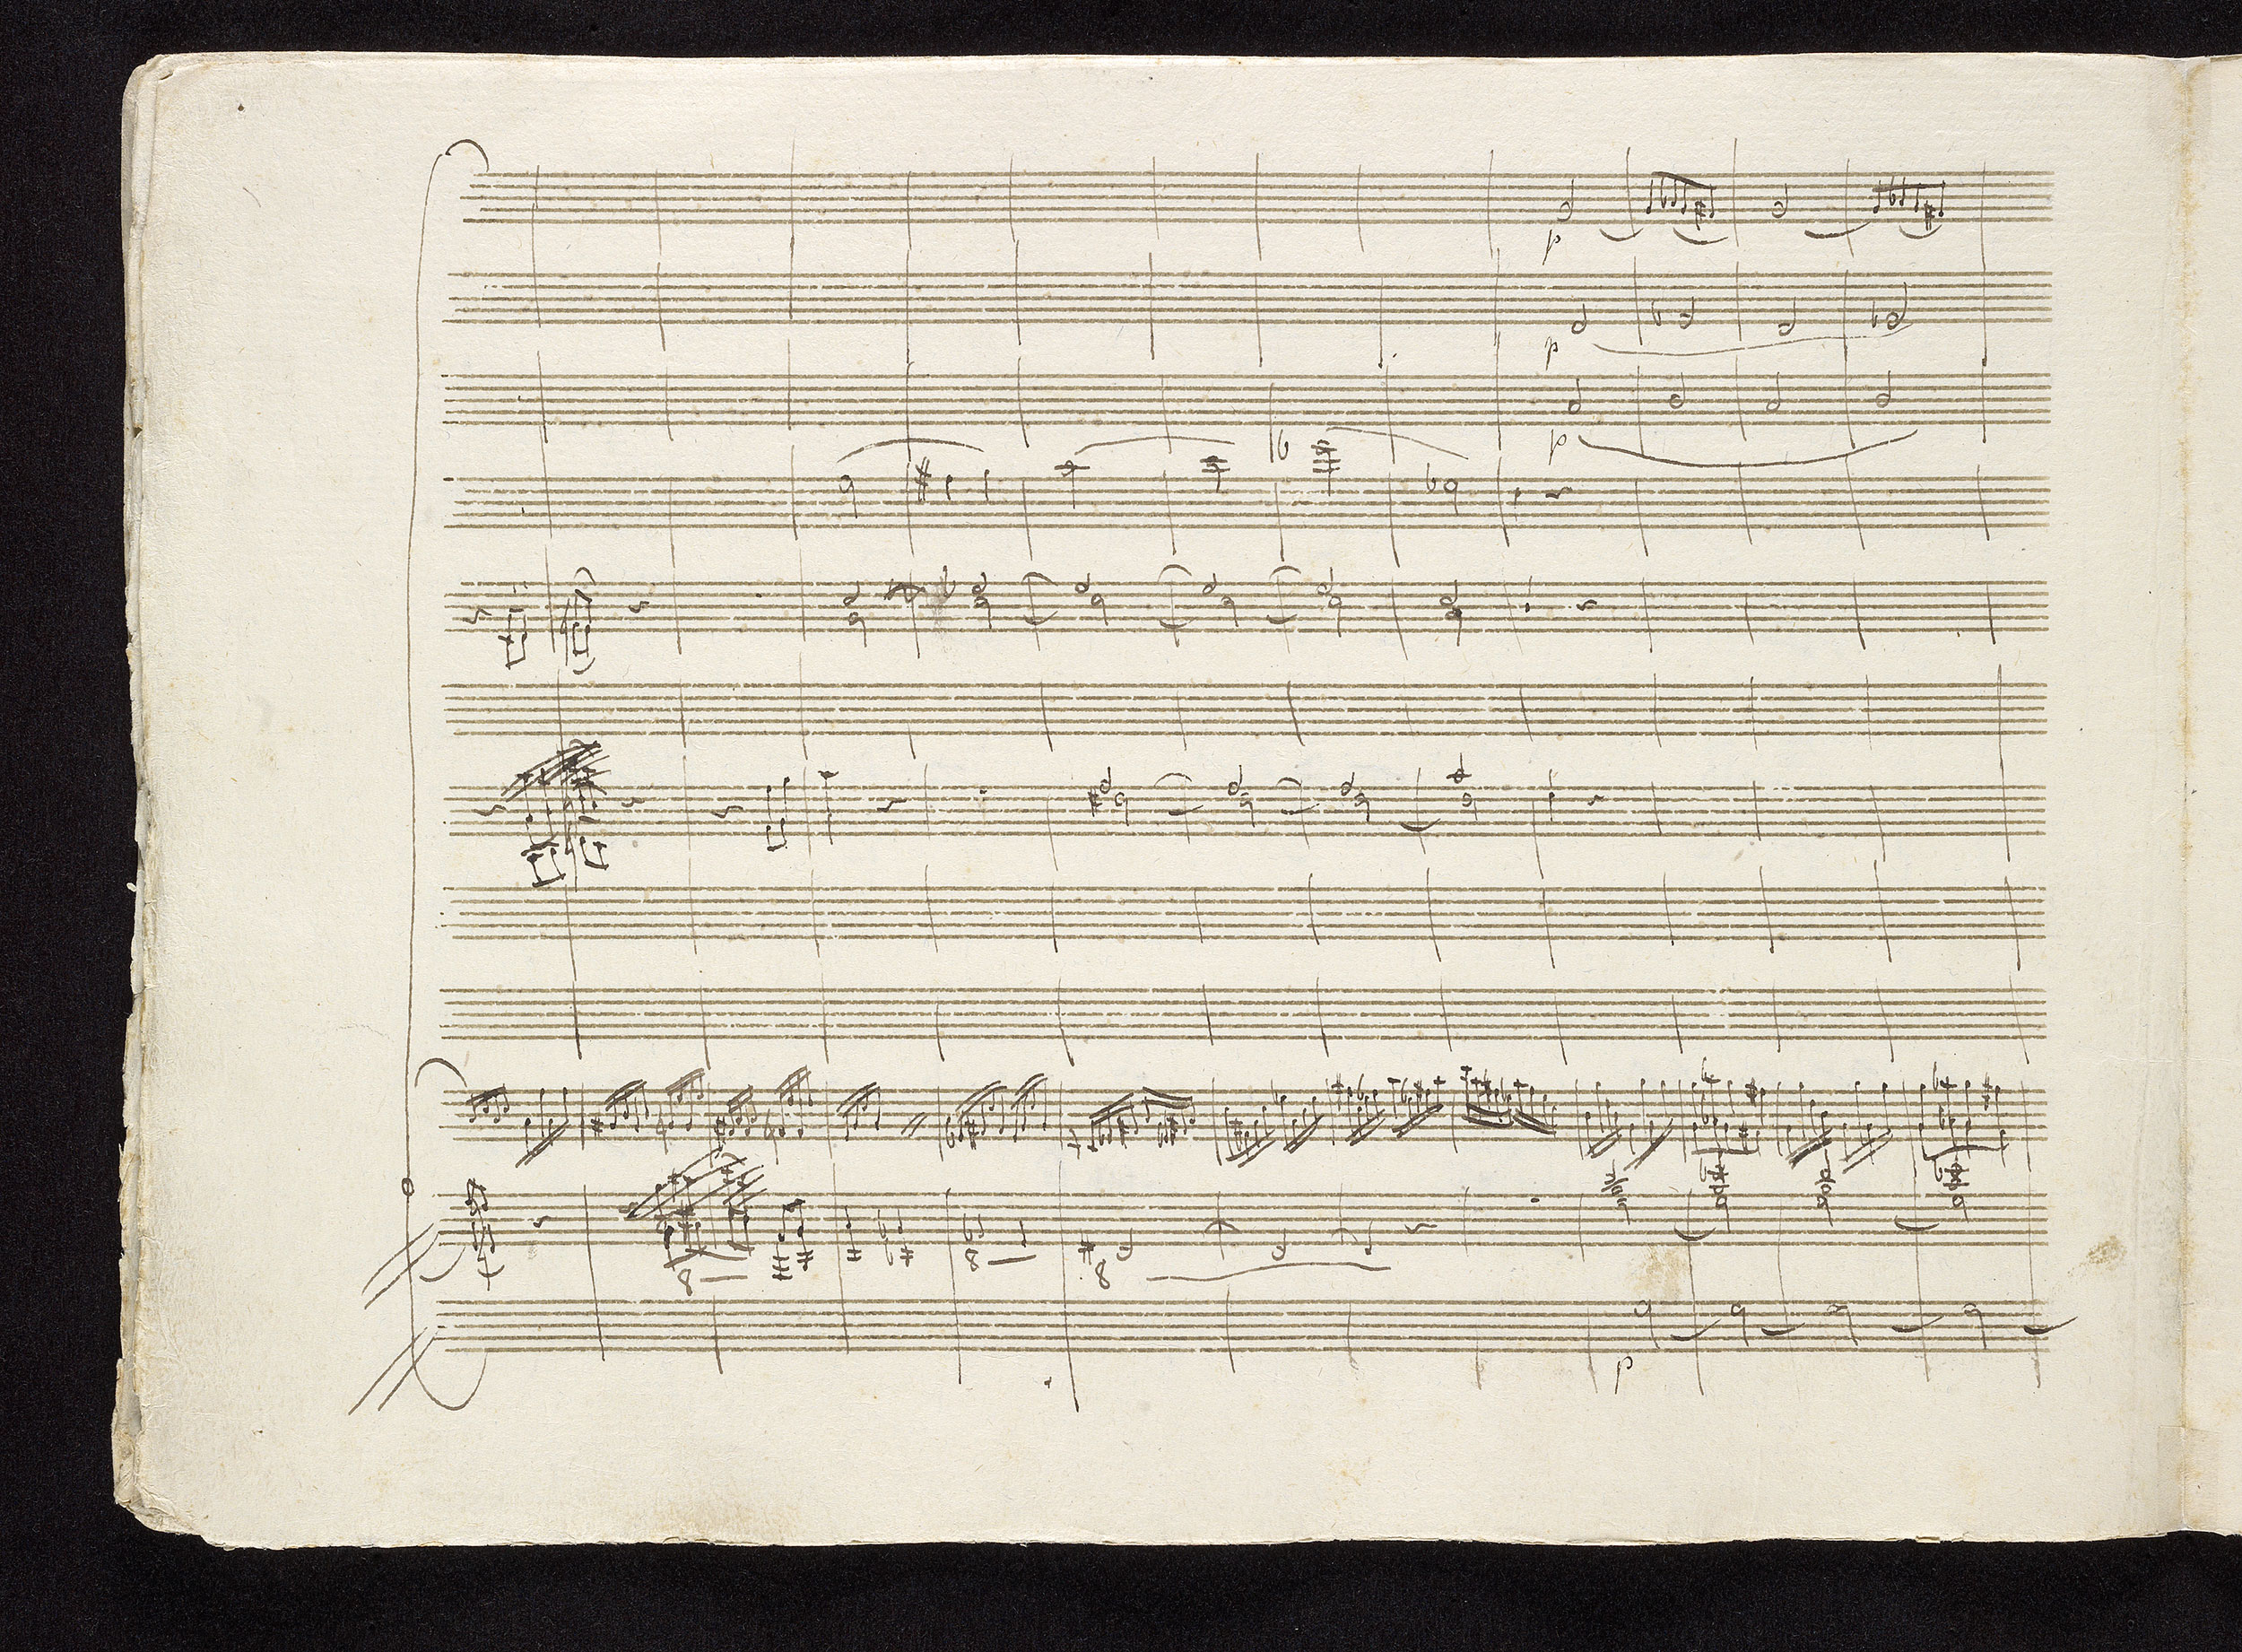 p
p
p
8
8
8
p